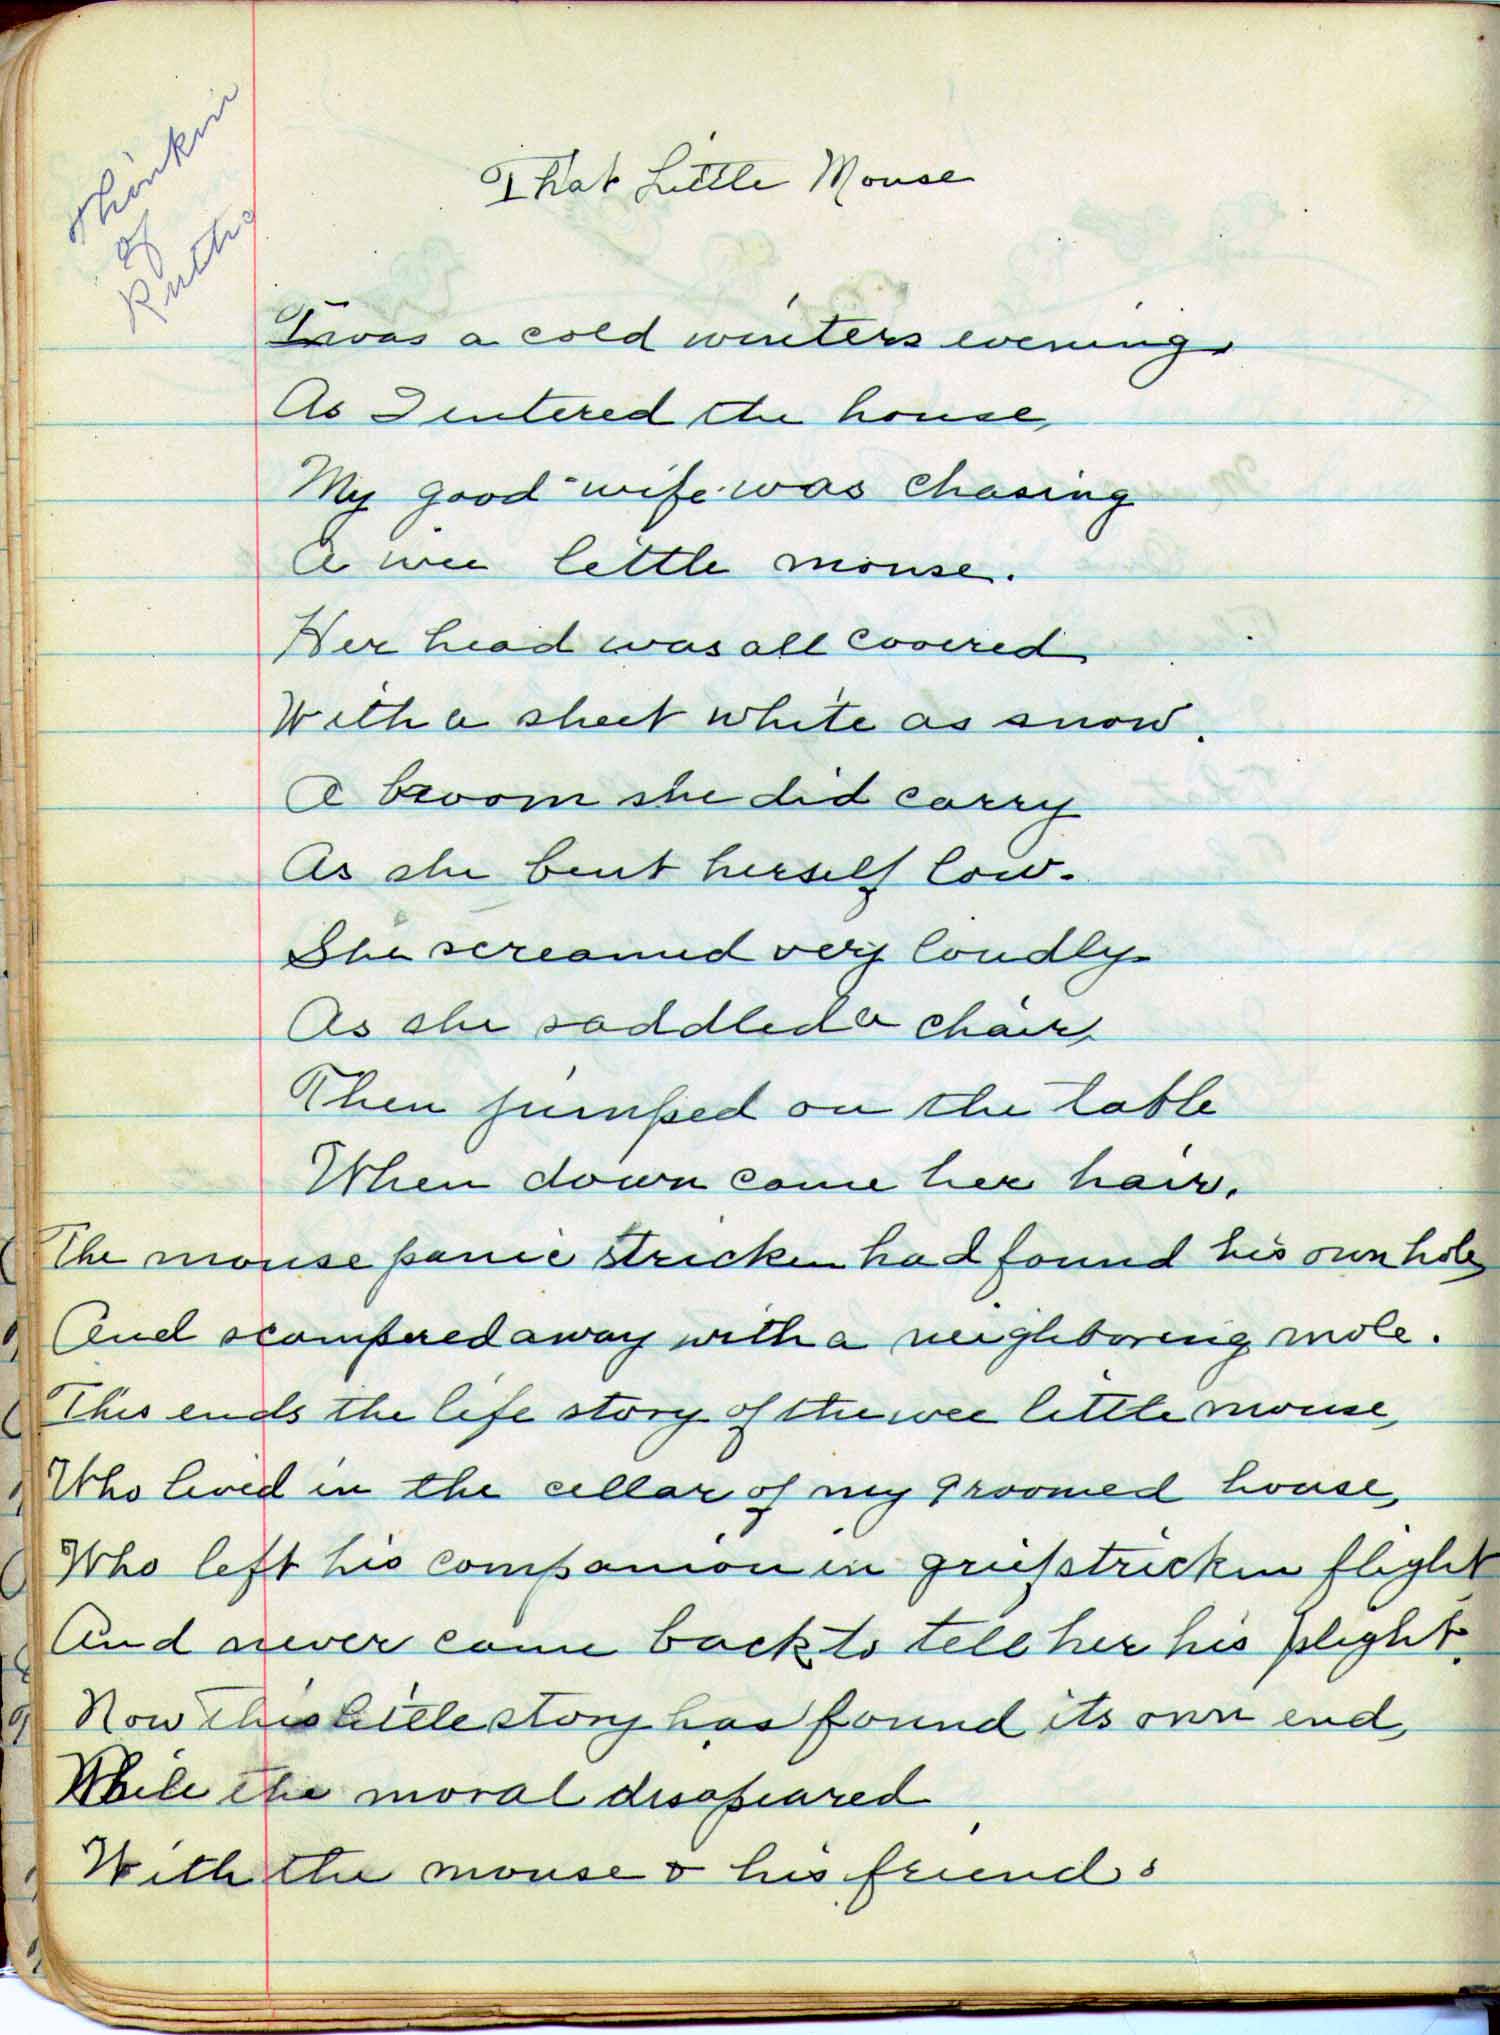 Thinkin
of
Ruth
That Little Mouse
Twas a cold winters evening,
As I entered the house,
My good wife was chasing
A wee little mouse.
Her head was all covered
With a sheet white as snow.
A broom she did carry
As she bent herself low.
She screamed very loudly
As she saddled a chair,
Then jumped on the table
When down came her hair.
The mouse panic stricken had found his own hole,
And scampered away with a neighboring mole.
This ends the life story of the wee little mouse,
Who lived in the cellar of my groomed house,
Who left his companion in griefstricken flight
And never came back to tell her his plight.
Now this little story has found its own end,
While the moral disapeared
With the mouse & his friend.